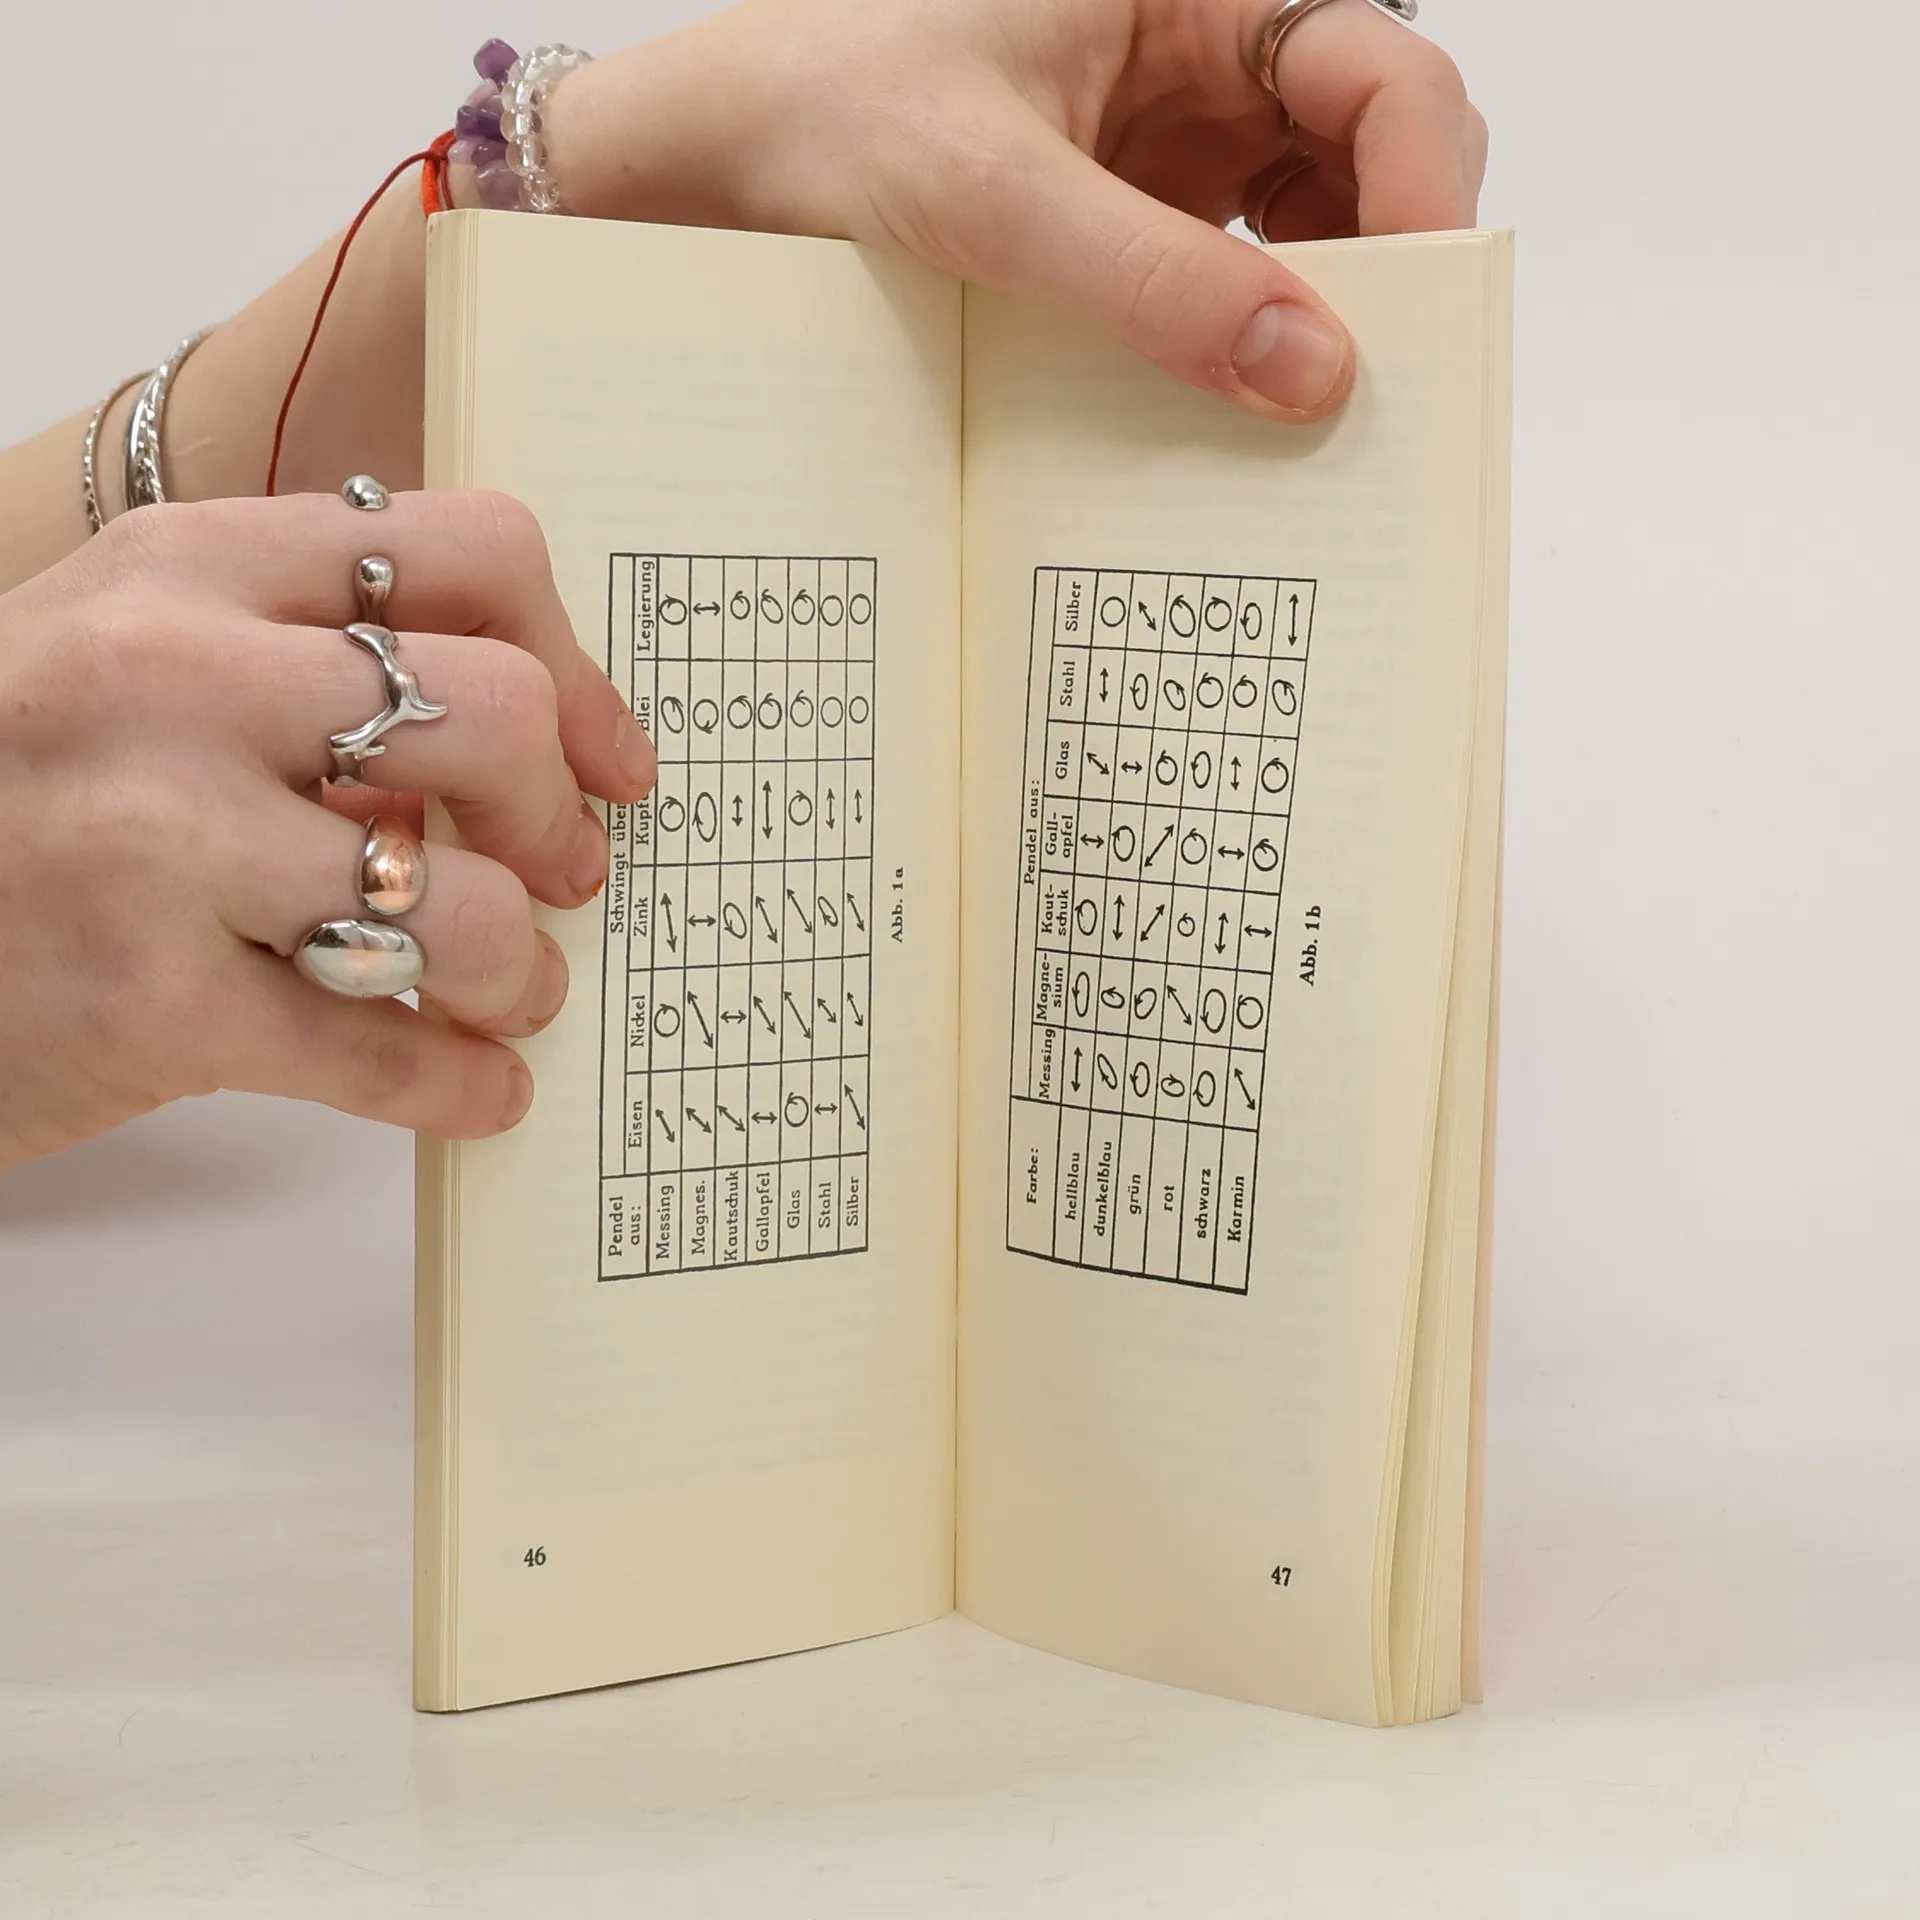 Pendel aus: Schwingt über
Eisen Nickel Zink Blei Legierung
Messing
Magnes.
Kautschuk
Gallapfel
Glas
Stahl
Silber
Abb. 1a
46
Farbe: Pendel aus:
Messing Magne-sium Kaut-schuk Gall-apfel Glas Stahl Silber
hellblau
dunkelblau
grün
rot
schwarz
Karmin
Abb. 1b
47